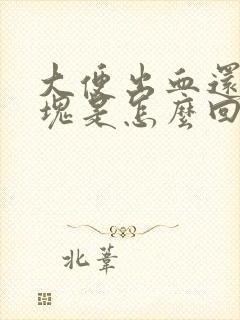 大便出血還
塊是怎麼回
北葦